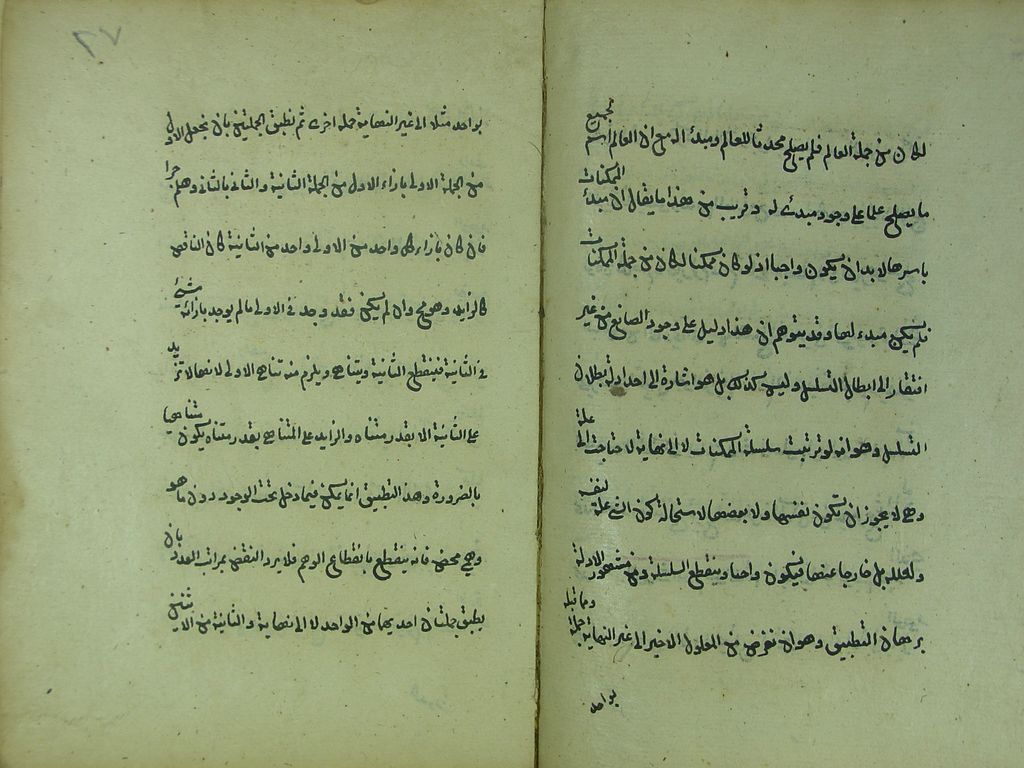 لكان من جملة العالم فلم يصلح محدثا للعالم ومبدأ له مع ان العالم اسم لجميع
ما يصلح علما على وجود مبدئ له وقريب من هذا ما يقال ان مبدأ الممكنات
باسرها لابد ان يكون واجبا اذ لو كان ممكنا لكان من جملة الممكنات
فلم يكن مبدء لها وقد يتوهم ان هذا دليل على وجود الصانع من غير
افتقار الى ابطال التسلسل وليس كذلك بل هو اشارة الى احد ادلة بطلان
التسلسل وهو انه لو ترتبت سلسلة الممكنات لا الى نهاية لاحتاجت الى علة
وهي لا يجوز ان تكون نفسها ولا بعضها لاستحالة كون الشئ علة لنفسه
ولعلله بل خارجا عنها فيكون واجبا وينقطع السلسلة ومن مشهور الادلة
برهان التطبيق وهو ان نفرض من المعلول الاخير الى غير النهاية جملة ومما قبله
بواحد
٧٦
بواحد مثلا الى غير النهاية جملة اخرى ثم نطبق الجملتين بان نجعل الاول
من الجملة الاولى بازاء الاول من الجملة الثانية والثانى بالثانى وهلم جرا
فان كان بازاء كل واحد من الاولى واحد من الثانية كان الناقص
كالزايد وهو مح وان لم يكن فقد وجد فى الاولى ما لم يوجد بازائه شئ
فى الثانية فينقطع الثانية ويتناهى ويلزم منه تناهى الاولى لانها لا تزيد
على الثانية الا بقدر متناه والزايد على المتناهى بقدر متناه يكون متناهيا
بالضرورة وهذا التطبيق انما يمكن فيما دخل تحت الوجود دون ما هو
وهمي محض فانه ينقطع بانقطاع الوهم فلا يرد النقض بمراتب العدد بان
يطبق جملتان احديهما من الواحد لا الى نهاية والثانية من الاثنين